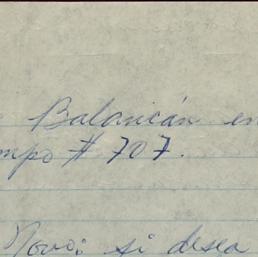 Balancán en
mpo # 707.
Novo: si desea